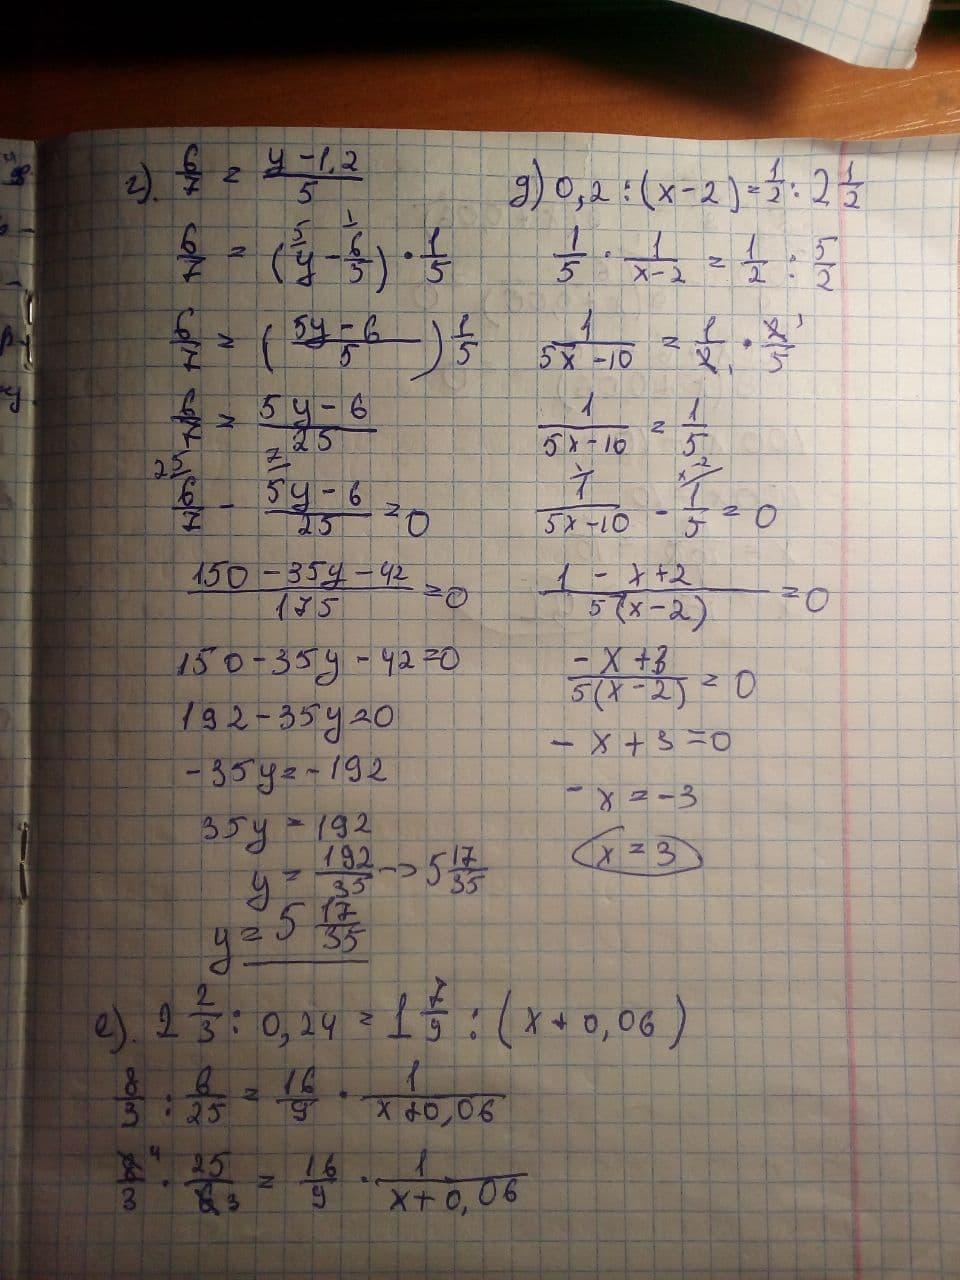 г). 6/7 = (y-1,2)/5
6/7 = (y - 6/5) · 1/5
6/7 = ((5y-6)/5) 1/5
6/7 = (5y-6)/25
6/7 - (5y-6)/25 = 0
(150-35y-42)/175 = 0
150-35y-42=0
192-35y=0
-35y=-192
35y=192
y = 192/35 -> 5 17/35
y = 5 17/35
д) 0,2 : (x-2) = 1/2 : 2 1/2
1/5 · 1/(x-2) = 1/2 : 5/2
1/(5x-10) = 1/2 · 2/5
1/(5x-10) = 1/5
1/(5x-10) - 1/5 = 0
(1-x+2)/(5(x-2)) = 0
(-x+3)/(5(x-2)) = 0
-x+3=0
-x=-3
x=3
е). 2 2/3 : 0,24 = 1 7/9 : (x+0,06)
8/3 : 6/25 = 16/9 · 1/(x+0,06)
8/3 · 25/6 = 16/9 · 1/(x+0,06)